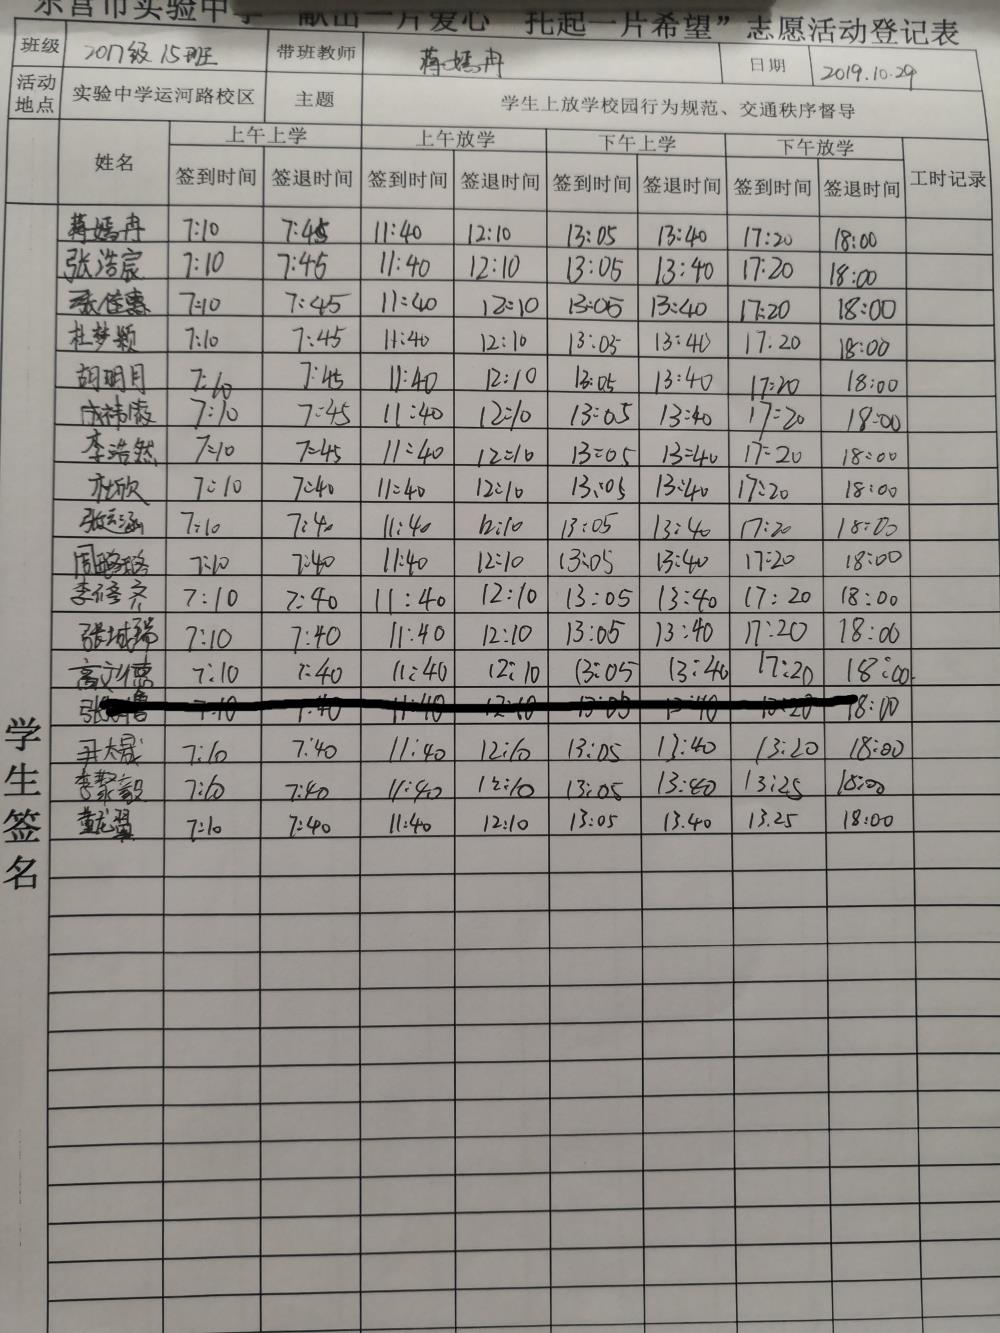 东营市实验中学“献出一片爱心 托起一片希望”志愿活动登记表
班级 2017级15班 带班教师 蒋嫣冉 日期 2019.10.29
活动地点 实验中学运河路校区 主题 学生上放学校园行为规范、交通秩序督导
姓名 上午上学 上午放学 下午上学 下午放学 工时记录
签到时间 签退时间 签到时间 签退时间 签到时间 签退时间 签到时间 签退时间
学生签名
蒋嫣冉 7:10 7:45 11:40 12:10 13:05 13:40 17:20 18:00
张浩宸 7:10 7:45 11:40 12:10 13:05 13:40 17:20 18:00
张佳惠 7:10 7:45 11:40 12:10 13:05 13:40 17:20 18:00
杜梦颖 7:10 7:45 11:40 12:10 13:05 13:40 17:20 18:00
胡玥月 7:10 7:45 11:40 12:10 13:05 13:40 17:20 18:00
7:10 7:45 11:40 12:10 13:05 13:40 17:20 18:00
李浩然 7:10 7:45 11:40 12:10 13:05 13:40 17:20 18:00
杜欣 7:10 7:40 11:40 12:10 13:05 13:40 17:20 18:00
张涵 7:10 7:40 11:40 12:10 13:05 13:40 17:20 18:00
周璐璐 7:10 7:40 11:40 12:10 13:05 13:40 17:20 18:00
李修齐 7:10 7:40 11:40 12:10 13:05 13:40 17:20 18:00
张城瑞 7:10 7:40 11:40 12:10 13:05 13:40 17:20 18:00
高文德 7:10 7:40 11:40 12:10 13:05 13:40 17:20 18:00
张 7:10 7:40 11:40 12:10 13:05 13:40 13:20 18:00
尹大晟 7:10 7:40 11:40 12:10 13:05 13:40 13:20 18:00
李毅 7:10 7:40 11:40 12:10 13:05 13:40 13:25 18:00
董龙翼 7:10 7:40 11:40 12:10 13:05 13.40 13.25 18:00